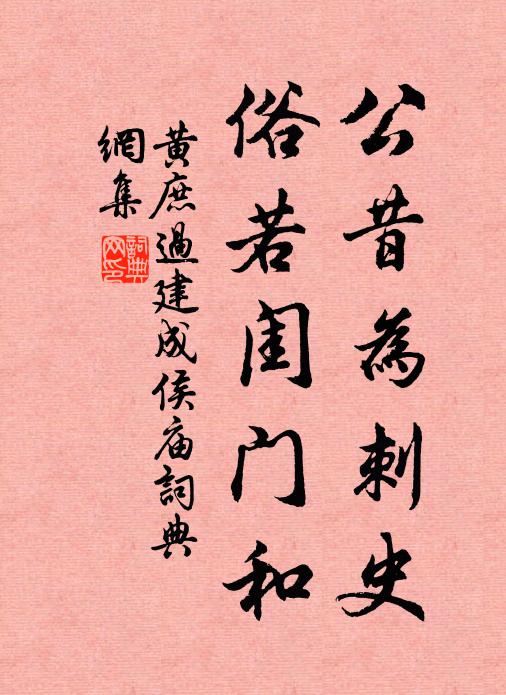 公昔為刺史
俗若闺门和
黄庶過建成侯庙詞典
網集
詞典網印